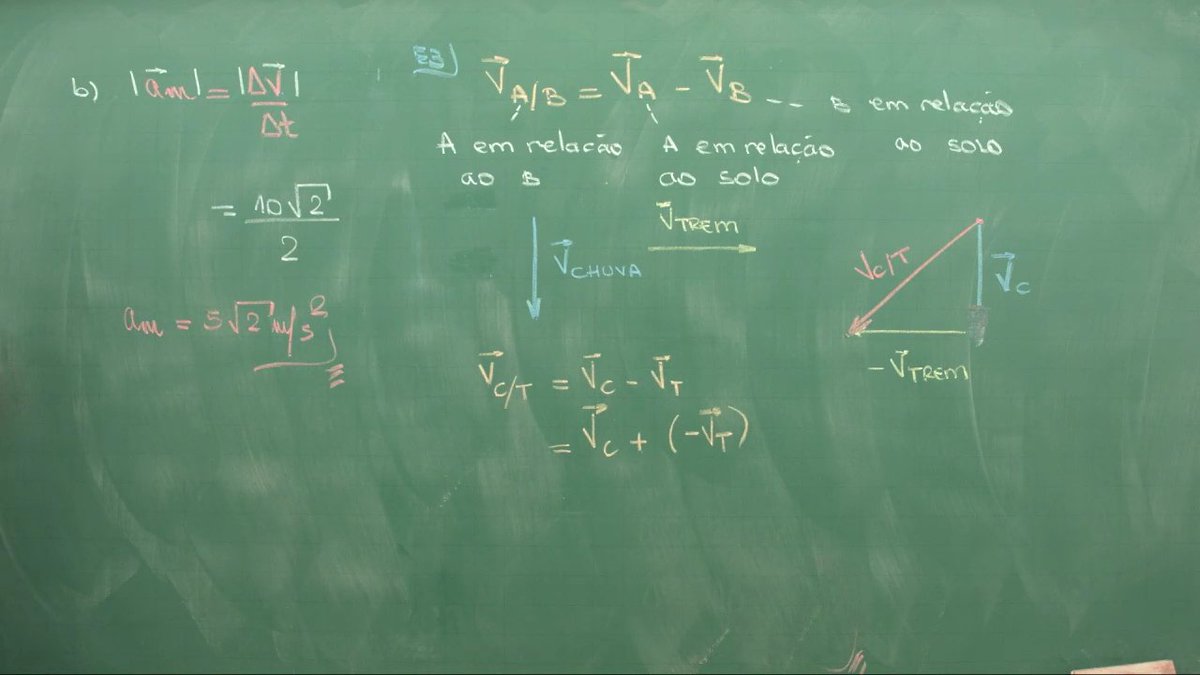 b) |a⃗m| = |ΔV⃗|
Δt
= 10√2
2
am = 5√2 m/s²
E3)
V⃗A/B = V⃗A - V⃗B -- B em relação
ao solo
A em relação
ao B
A em relação
ao solo
V⃗CHUVA
V⃗TREM
V⃗C/T = V⃗C - V⃗T
= V⃗C + (-V⃗T)
VC/T
V⃗C
-V⃗TREM